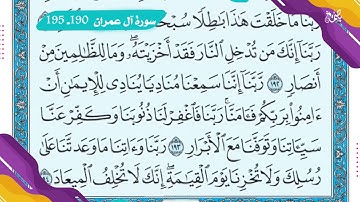 سورة آل عمران 190ـ195
رَبَّنَا مَا خَلَقْتَ هَٰذَا بَٰطِلًا سُبْحَ
رَبَّنَآ إِنَّكَ مَن تُدْخِلِ ٱلنَّارَ فَقَدْ أَخْزَيْتَهُۥ ۖ وَمَا لِلظَّٰلِمِينَ مِنْ
أَنصَارٍ ١٩٢ رَّبَّنَآ إِنَّنَا سَمِعْنَا مُنَادِيًا يُنَادِى لِلْإِيمَٰنِ أَنْ
ءَامِنُوا۟ بِرَبِّكُمْ فَـَٔامَنَّا ۚ رَبَّنَا فَٱغْفِرْ لَنَا ذُنُوبَنَا وَكَفِّرْ عَنَّا
سَيِّـَٔاتِنَا وَتَوَفَّنَا مَعَ ٱلْأَبْرَارِ ١٩٣ رَبَّنَا وَءَاتِنَا مَا وَعَدتَّنَا عَلَىٰ
رُسُلِكَ وَلَا تُخْزِنَا يَوْمَ ٱلْقِيَٰمَةِ ۗ إِنَّكَ لَا تُخْلِفُ ٱلْمِيعَادَ